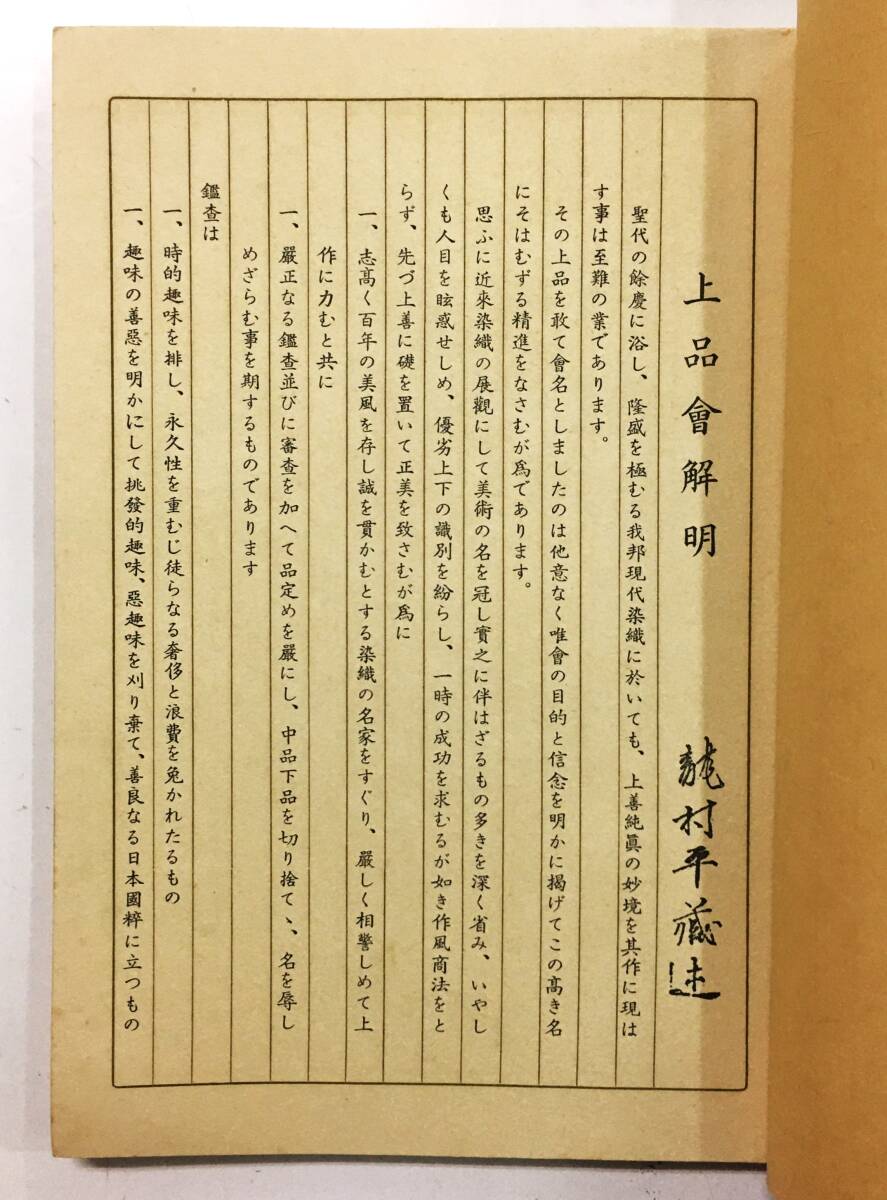 上品會解明
龍村平藏述
聖代の餘慶に浴し、隆盛を極むる我邦現代染織に於いても、上善純眞の妙境を其作に現は
す事は至難の業であります。
その上品を敢て會名としましたのは他意なく唯會の目的と信念を明かに揭げてこの高き名
にそはむずる精進をなさむが爲であります。
思ふに近來染織の展觀にして美術の名を冠し實之に伴はざるもの多きを深く省み、いやし
くも人目を眩惑せしめ、優劣上下の識別を紛らし、一時の成功を求むるが如き作風商法をと
らず、先づ上善に礎を置いて正美を致さむが爲に
一、志高く百年の美風を存し誠を貫かむとする染織の名家をすぐり、嚴しく相警しめて上
作に力むと共に
一、嚴正なる鑑查並びに審查を加へて品定めを嚴にし、中品下品を切り捨てゝ、名を辱し
めざらむ事を期するものであります
鑑查は
一、時的趣味を排し、永久性を重むじ徒らなる奢侈と浪費を免かれたるもの
一、趣味の善惡を明かにして挑發的趣味、惡趣味を刈り棄て、善良なる日本國粹に立つもの